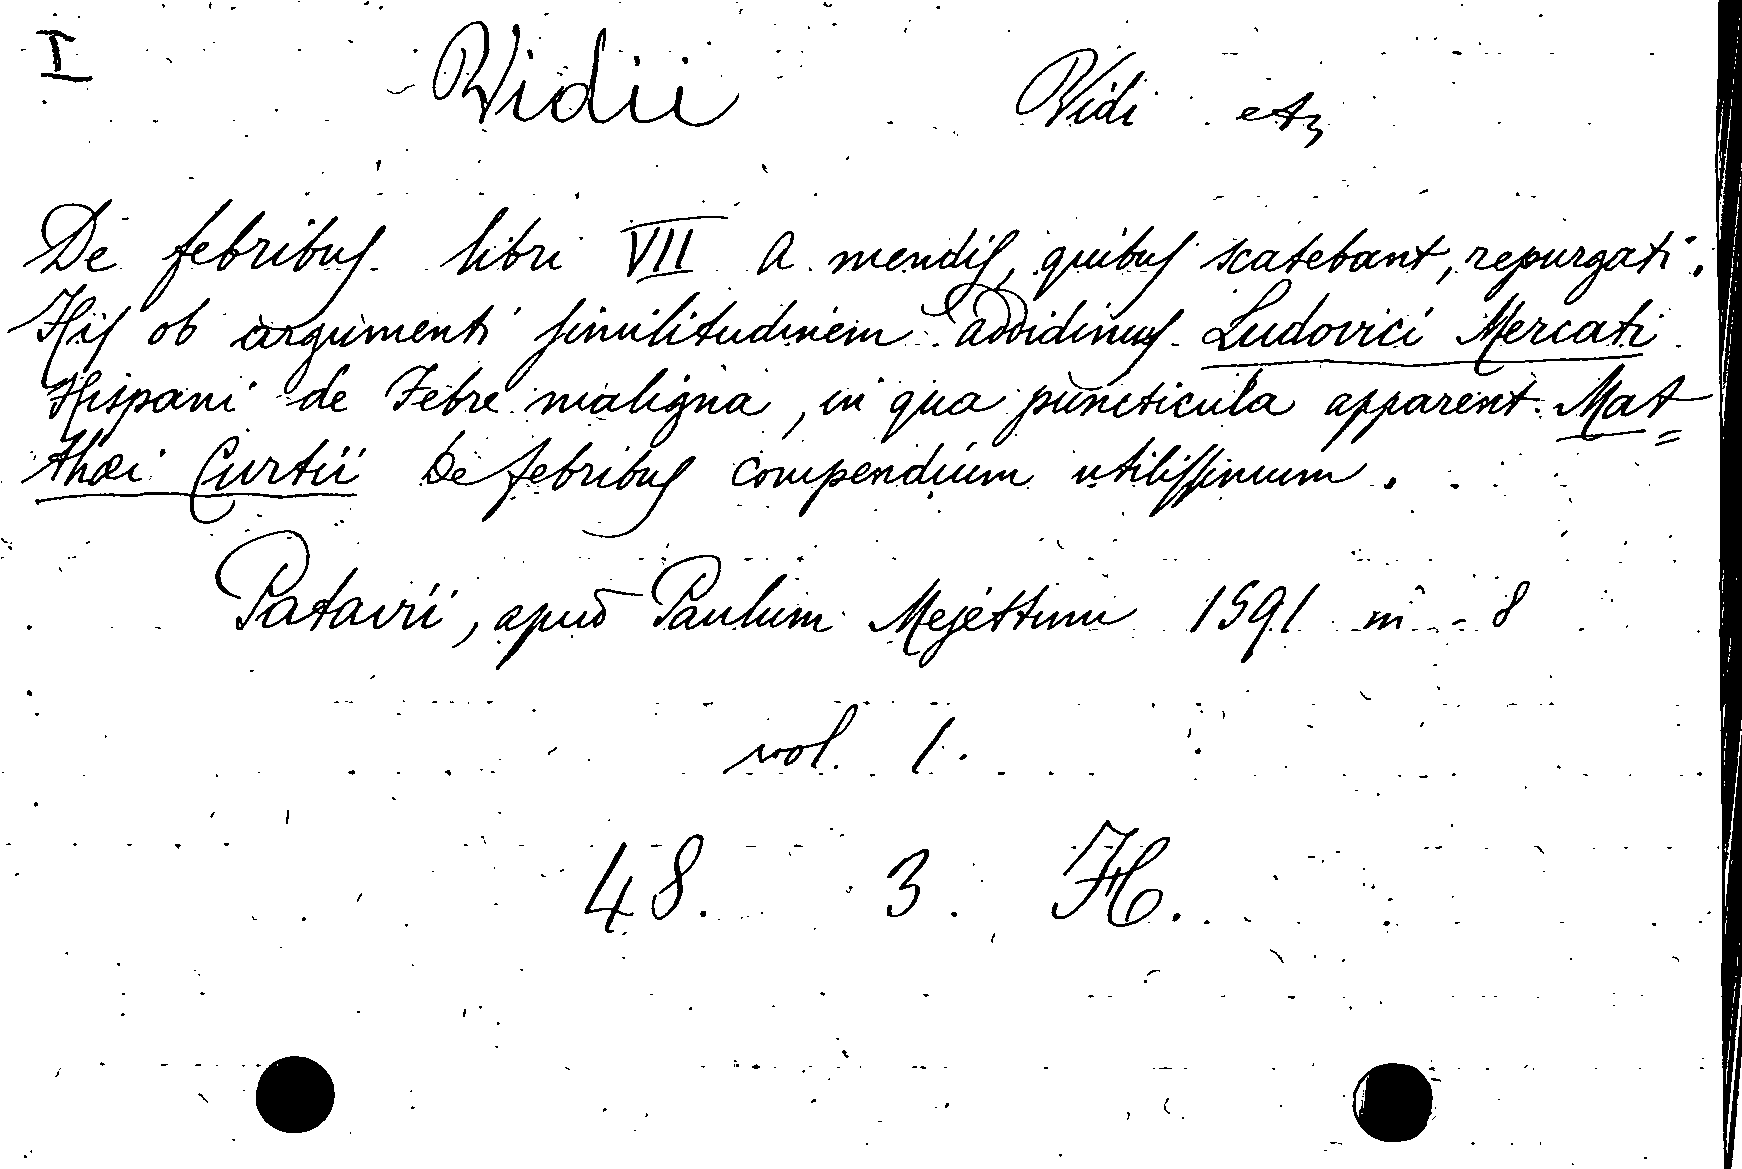 I Vidii Vidi etz
De febribus libri VII A mendis, quibus scatebant, repurgati.
His ob argumenti similitudinem addidimus Ludovici Mercati
Hispani de Febre maligna, in qua puncticula apparent. Mat=
thæi Curtii De febribus compendium utilissimum.
Patavii, apud Paulum Mejettum 1591 in - 8
vol. 1.
48. 3. H.